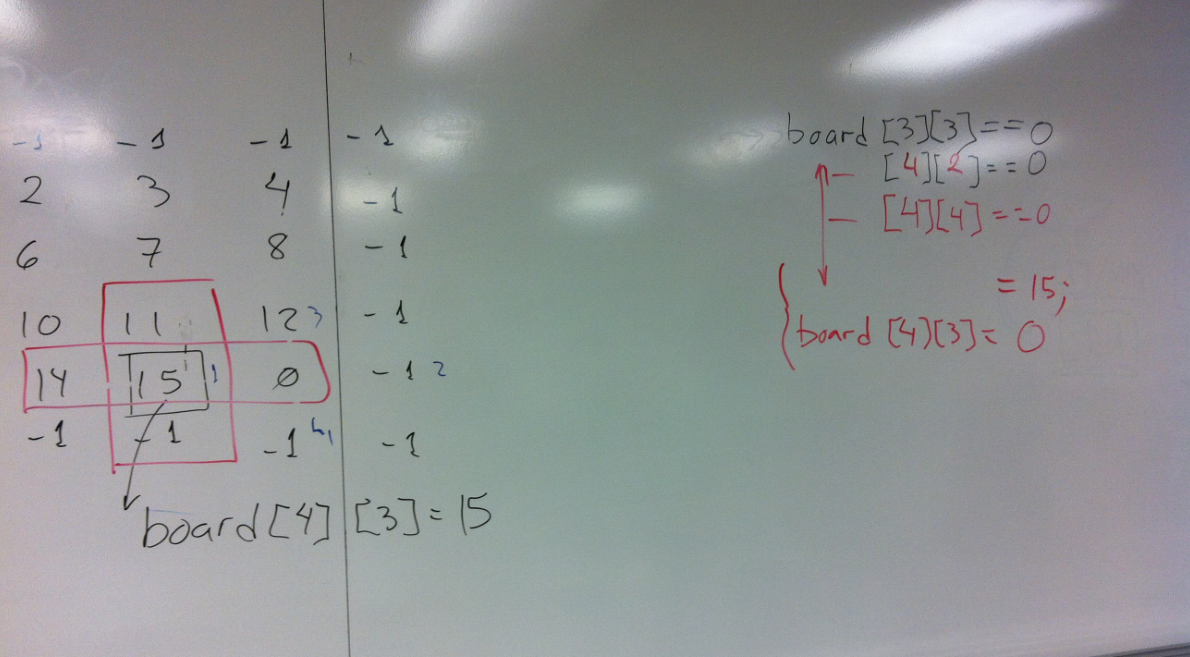 -1 -1 -1 -1
2 3 4 -1
6 7 8 -1
10 11 12 3 -1
14 15 1 0 -1 2
-1 -1 -1 -1
board[4][3]=15
board[3][3]==0
[4][2]==0
[4][4]==0
=15;
board[4][3]=0